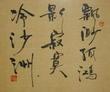 缥缈孤鸿
影寂寞
冷沙洲